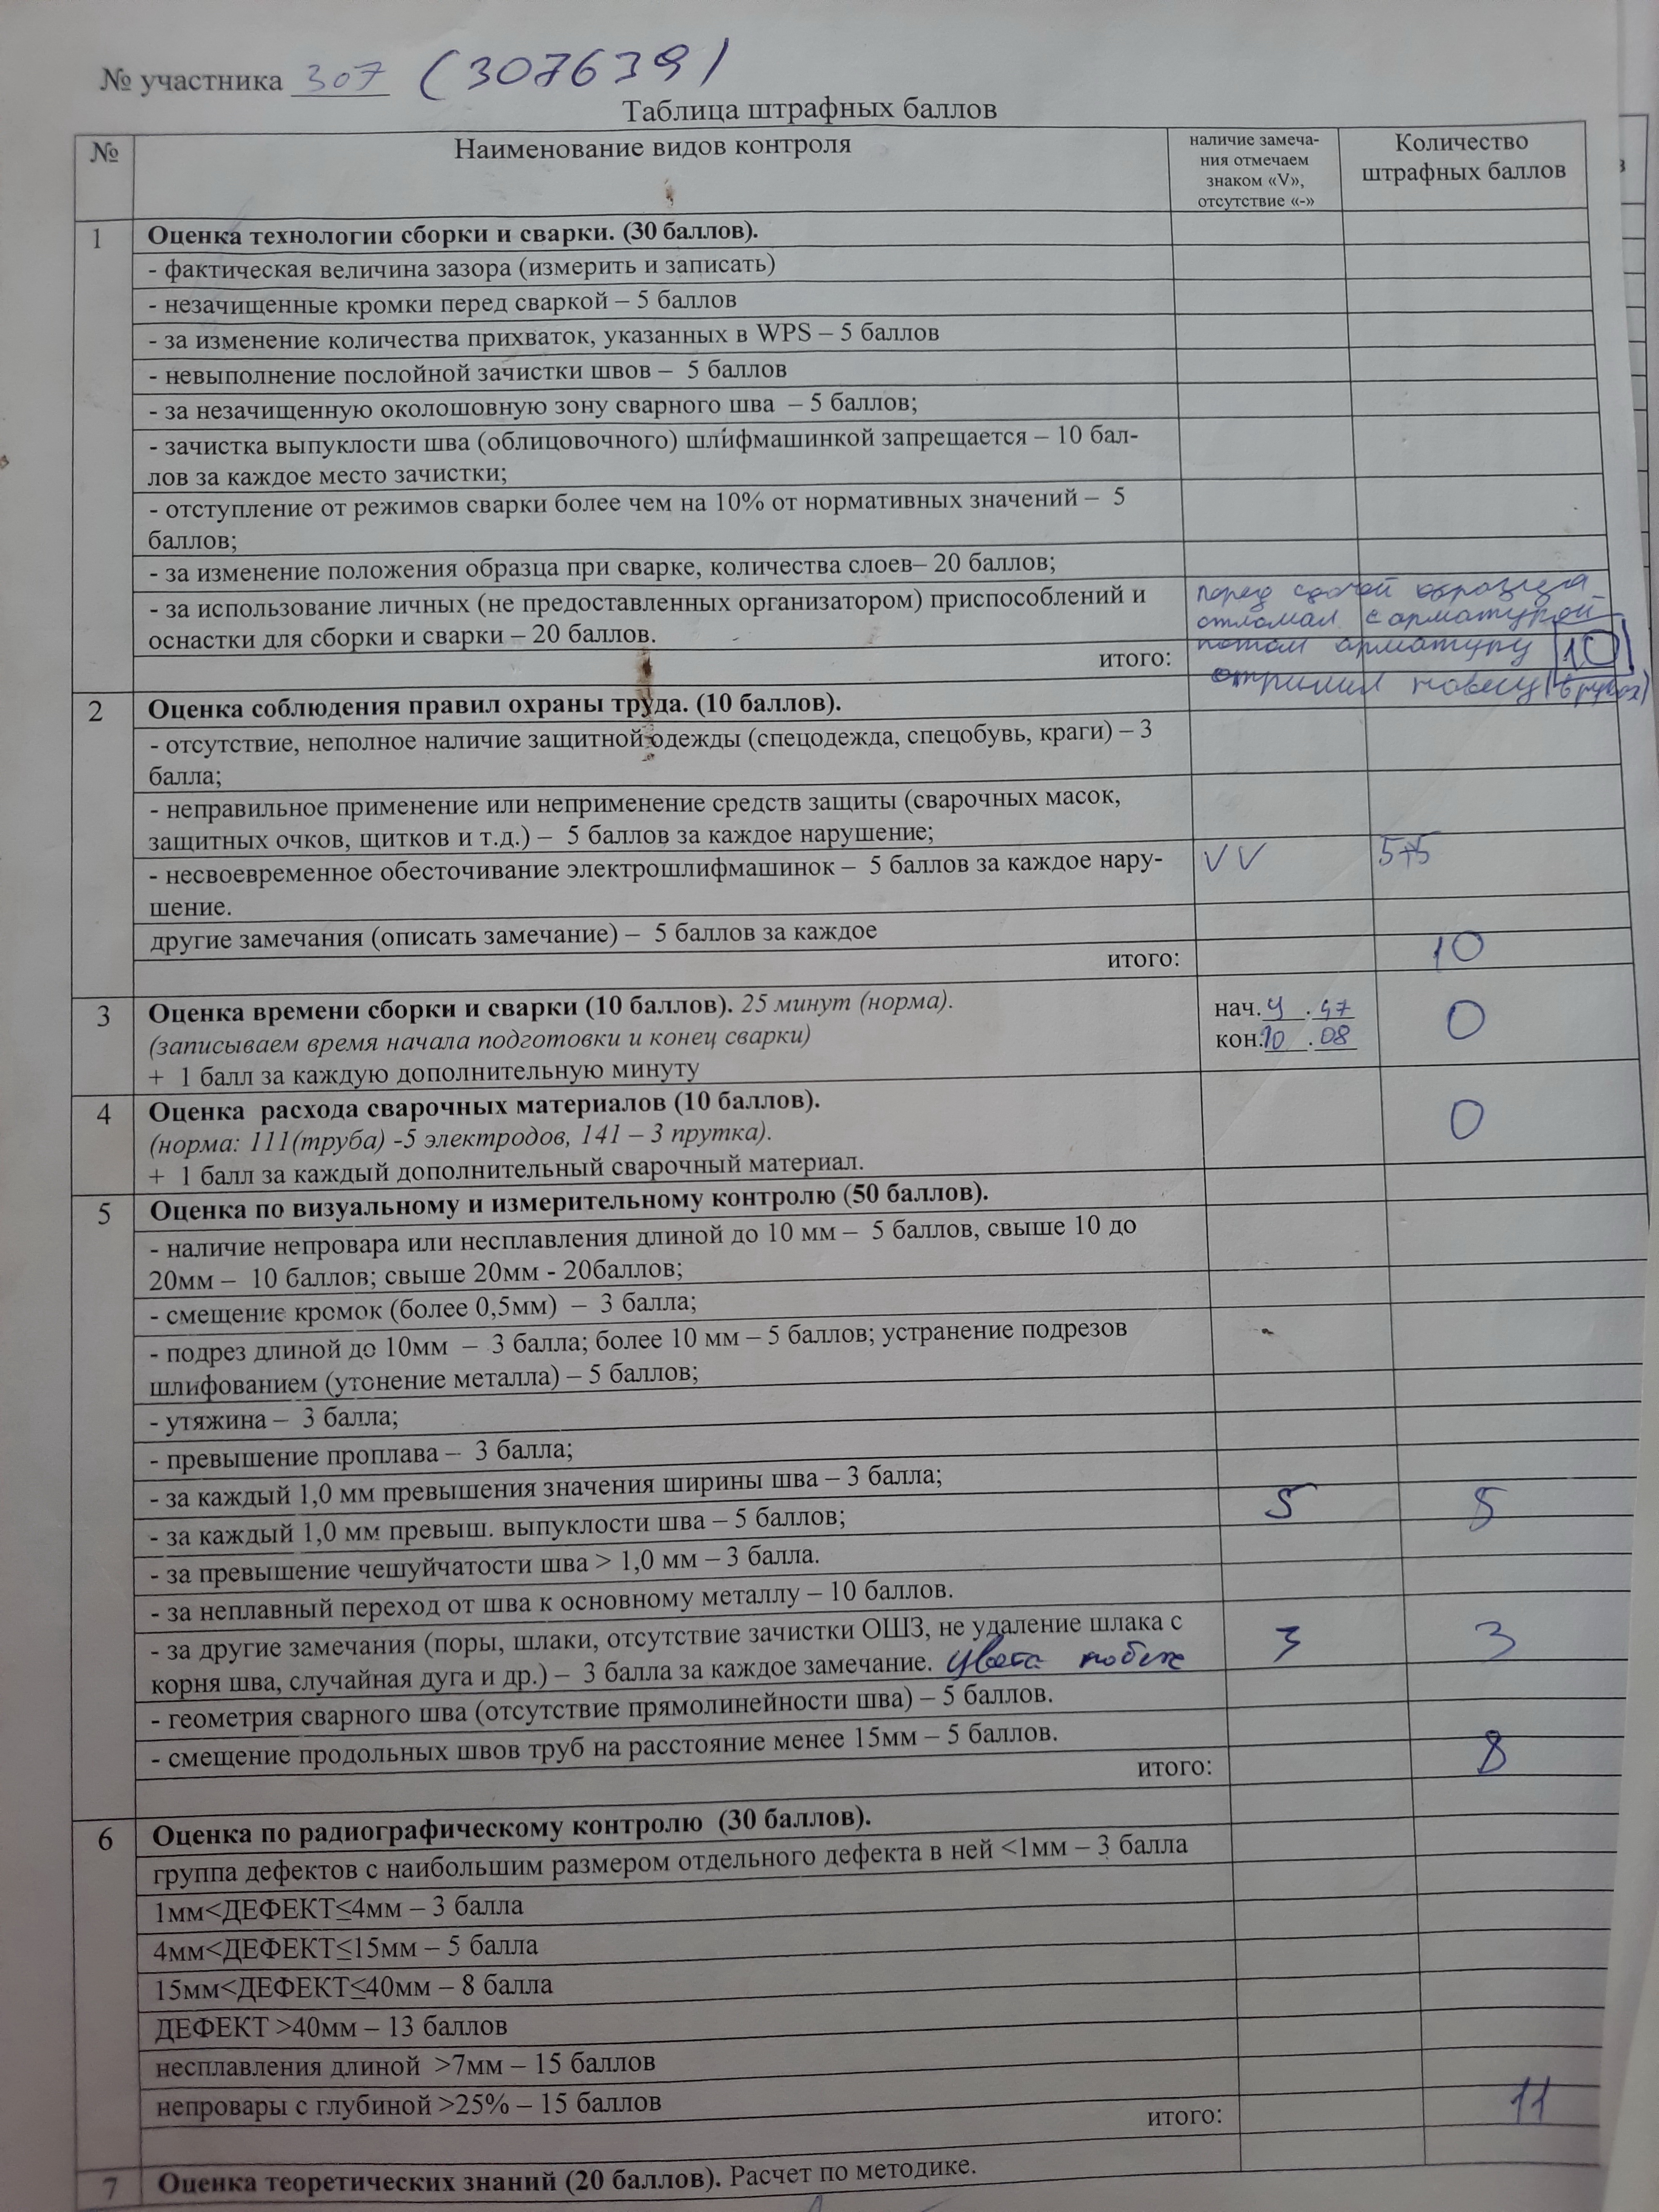 № участника 307 (307639)
Таблица штрафных баллов
№ Наименование видов контроля наличие замеча-
ния отмечаем
знаком «V»,
отсутствие «-» Количество
штрафных баллов
1 Оценка технологии сборки и сварки. (30 баллов).
- фактическая величина зазора (измерить и записать)
- незачищенные кромки перед сваркой – 5 баллов
- за изменение количества прихваток, указанных в WPS – 5 баллов
- невыполнение послойной зачистки швов – 5 баллов
- за незачищенную околошовную зону сварного шва – 5 баллов;
- зачистка выпуклости шва (облицовочного) шлифмашинкой запрещается – 10 бал-
лов за каждое место зачистки;
- отступление от режимов сварки более чем на 10% от нормативных значений – 5
баллов;
- за изменение положения образца при сварке, количества слоев– 20 баллов;
- за использование личных (не предоставленных организатором) приспособлений и
оснастки для сборки и сварки – 20 баллов.
перед сдачей образца
отломал с арматурой
потом арматуру
итого: 10
2 Оценка соблюдения правил охраны труда. (10 баллов).
- отсутствие, неполное наличие защитной одежды (спецодежда, спецобувь, краги) – 3
балла;
- неправильное применение или неприменение средств защиты (сварочных масок,
защитных очков, щитков и т.д.) – 5 баллов за каждое нарушение;
- несвоевременное обесточивание электрошлифмашинок – 5 баллов за каждое нару-
шение. V V 5+5
другие замечания (описать замечание) – 5 баллов за каждое
итого: 10
3 Оценка времени сборки и сварки (10 баллов). 25 минут (норма).
(записываем время начала подготовки и конец сварки)
+ 1 балл за каждую дополнительную минуту
нач. 9 . 47
кон. 10 . 08
0
4 Оценка расхода сварочных материалов (10 баллов).
(норма: 111(труба) -5 электродов, 141 – 3 прутка).
+ 1 балл за каждый дополнительный сварочный материал.
0
5 Оценка по визуальному и измерительному контролю (50 баллов).
- наличие непровара или несплавления длиной до 10 мм – 5 баллов, свыше 10 до
20мм – 10 баллов; свыше 20мм - 20баллов;
- смещение кромок (более 0,5мм) – 3 балла;
- подрез длиной до 10мм – 3 балла; более 10 мм – 5 баллов; устранение подрезов
шлифованием (утонение металла) – 5 баллов;
- утяжина – 3 балла;
- превышение проплава – 3 балла;
- за каждый 1,0 мм превышения значения ширины шва – 3 балла;
- за каждый 1,0 мм превыш. выпуклости шва – 5 баллов; 5 5
- за превышение чешуйчатости шва > 1,0 мм – 3 балла.
- за неплавный переход от шва к основному металлу – 10 баллов.
- за другие замечания (поры, шлаки, отсутствие зачистки ОШЗ, не удаление шлака с
корня шва, случайная дуга и др.) – 3 балла за каждое замечание. цвета побеж 3 3
- геометрия сварного шва (отсутствие прямолинейности шва) – 5 баллов.
- смещение продольных швов труб на расстояние менее 15мм – 5 баллов.
итого: 8
6 Оценка по радиографическому контролю (30 баллов).
группа дефектов с наибольшим размером отдельного дефекта в ней <1мм – 3 балла
1мм<ДЕФЕКТ≤4мм – 3 балла
4мм<ДЕФЕКТ≤15мм – 5 балла
15мм<ДЕФЕКТ≤40мм – 8 балла
ДЕФЕКТ >40мм – 13 баллов
несплавления длиной >7мм – 15 баллов
непровары с глубиной >25% – 15 баллов
итого: 11
7 Оценка теоретических знаний (20 баллов). Расчет по методике.